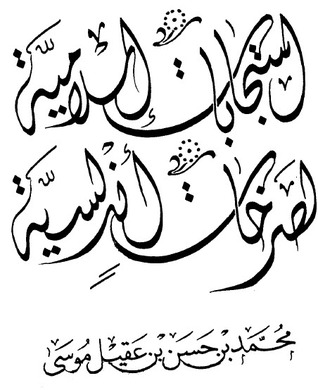 استجابات إسلامية
لصرخات أندلسية
محمد بن حسن بن عقيل موسى